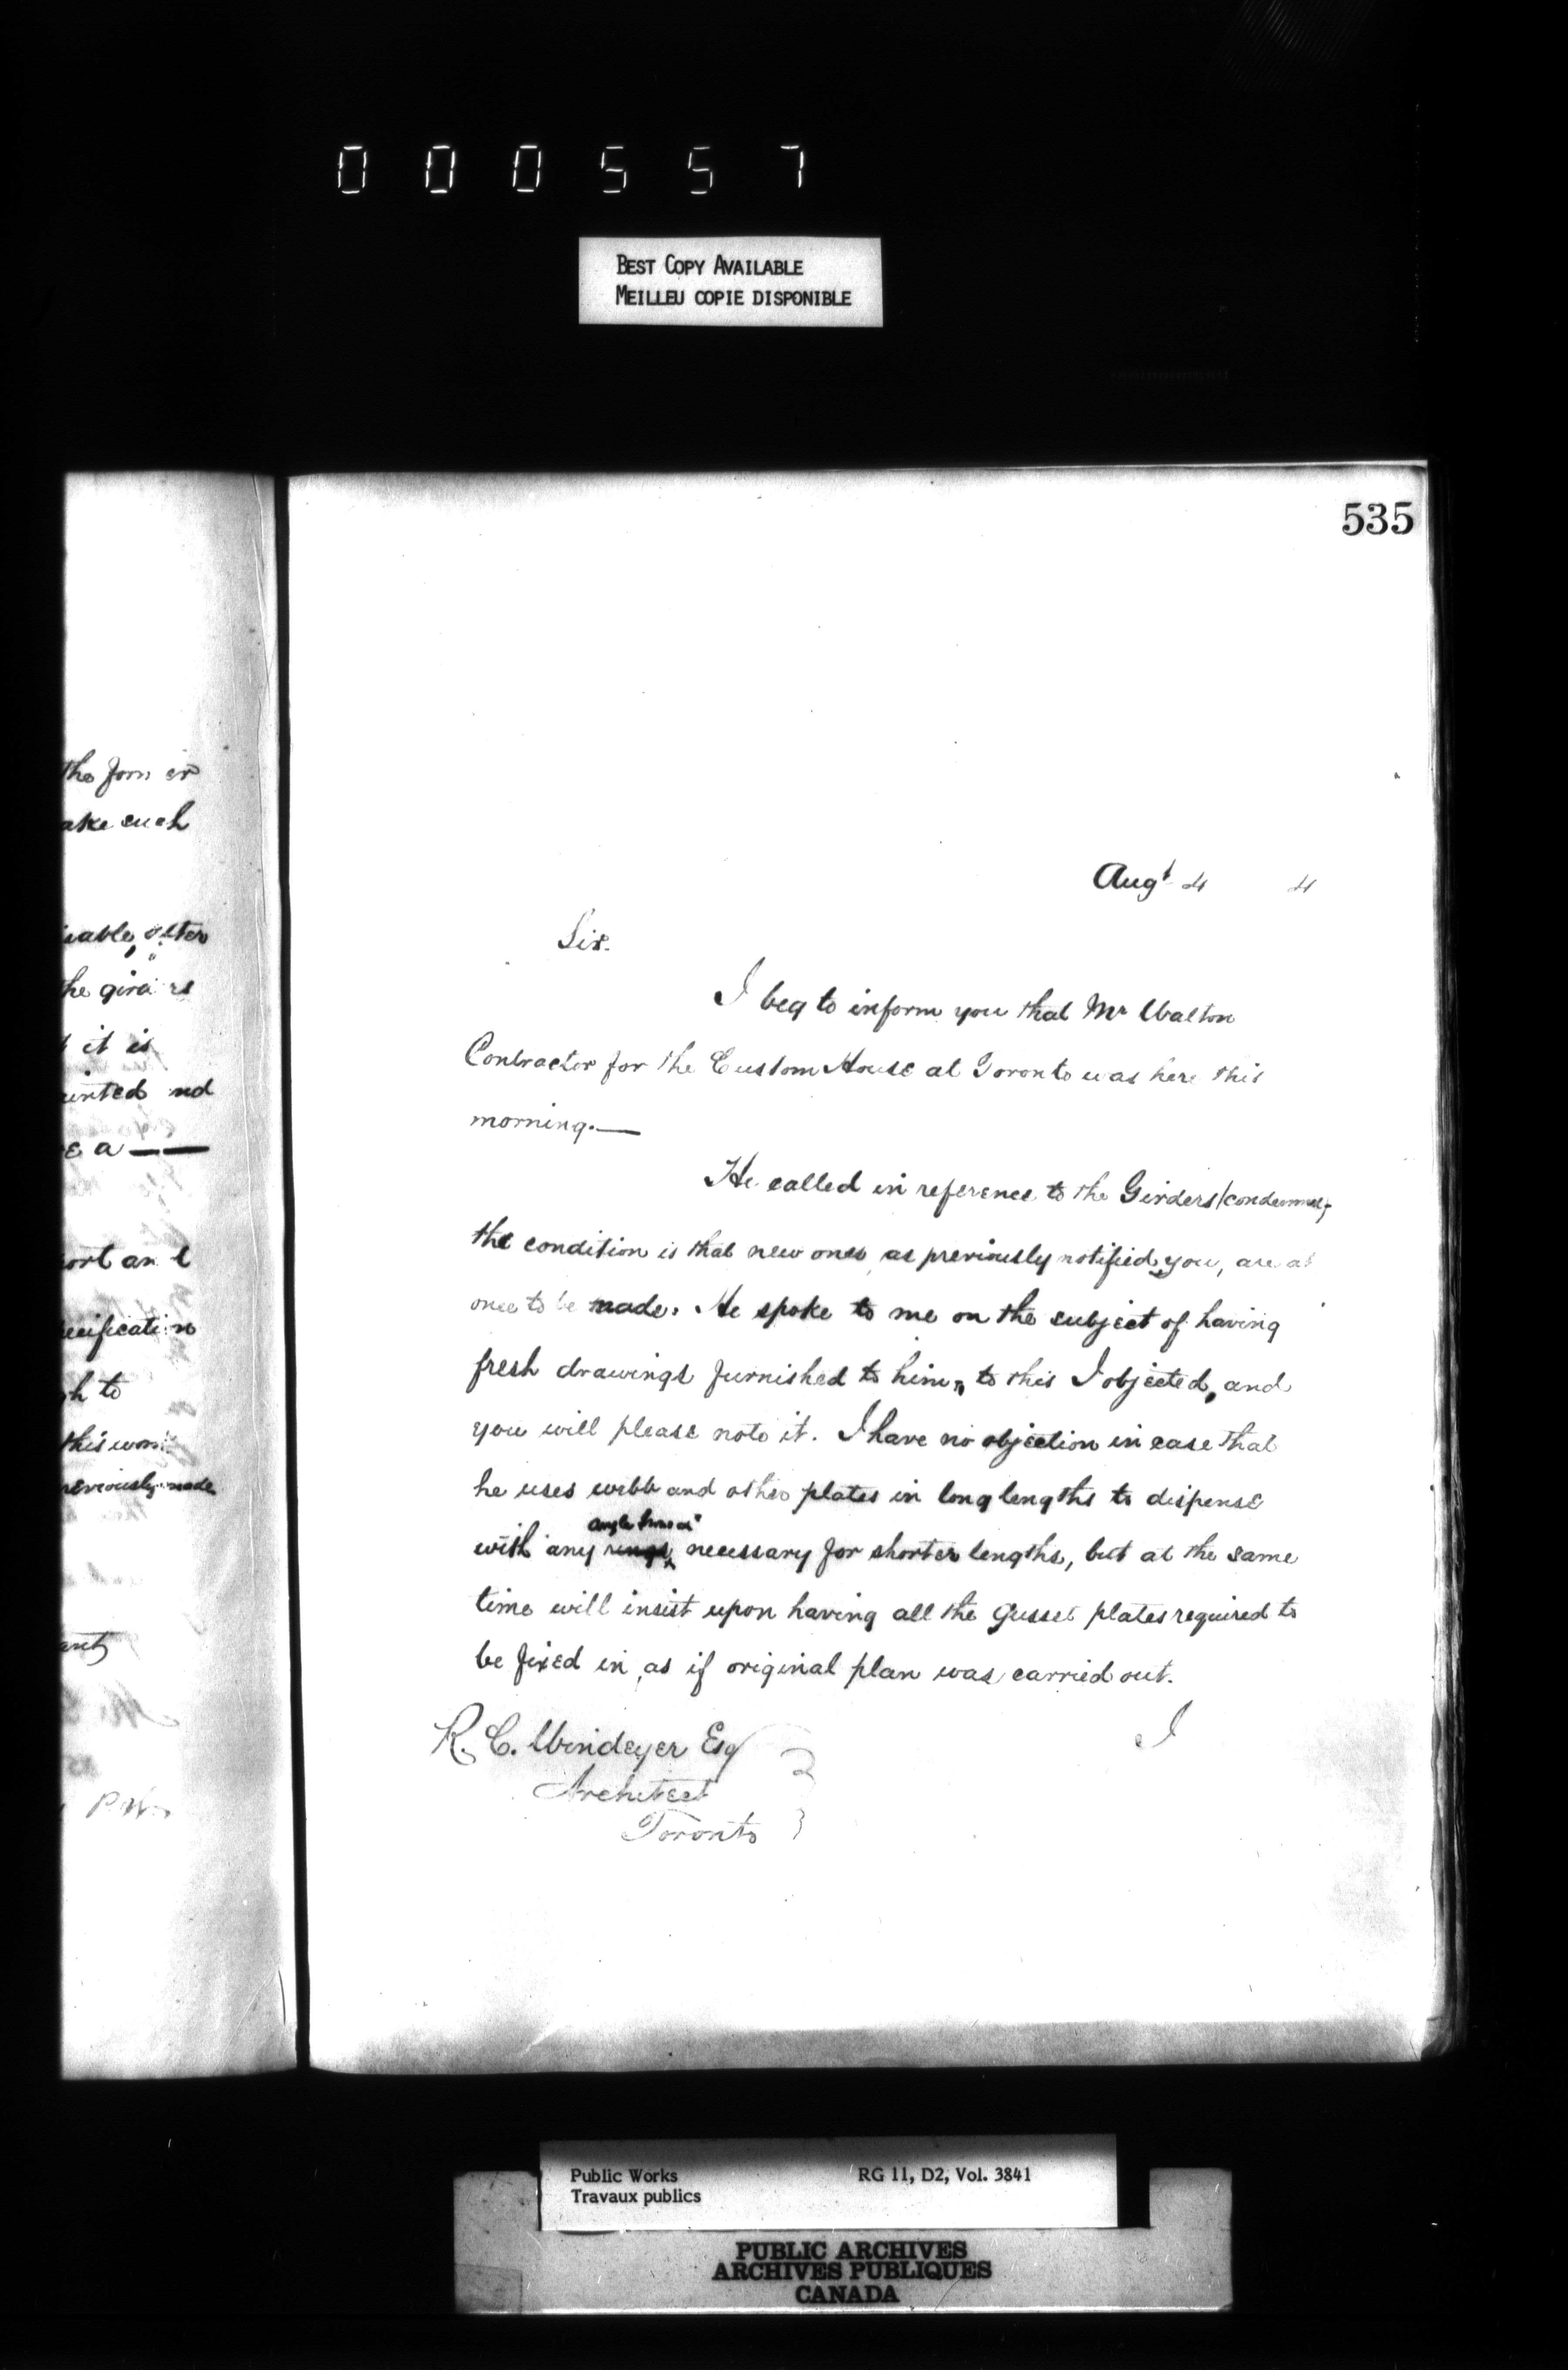 000557
BEST COPY AVAILABLE
MEILLEU COPIE DISPONIBLE
535
ake such
it is
e a ——
ecification
gh to
previously made
Augt 4 4
Sir.
I beg to inform you that Mr Walton
Contractor for the Custom House at Toronto was here this
morning.—
He called in reference to the Girders/condemned,
the condition is that new ones, as previously notified you, are at
once to be made. He spoke to me on the subject of having
fresh drawings furnished to him, to this I objected, and
you will please note it. I have no objection in case that
he uses webb and other plates in long lengths to dispense
with any necessary for shorter lengths, but at the same
time will insist upon having all the Gusset plates required to
be fixed in, as if original plan was carried out.
I
R. C. Windeyer Esq
Architect
Toronto
Public Works RG 11, D2, Vol. 3841
Travaux publics
PUBLIC ARCHIVES
ARCHIVES PUBLIQUES
CANADA